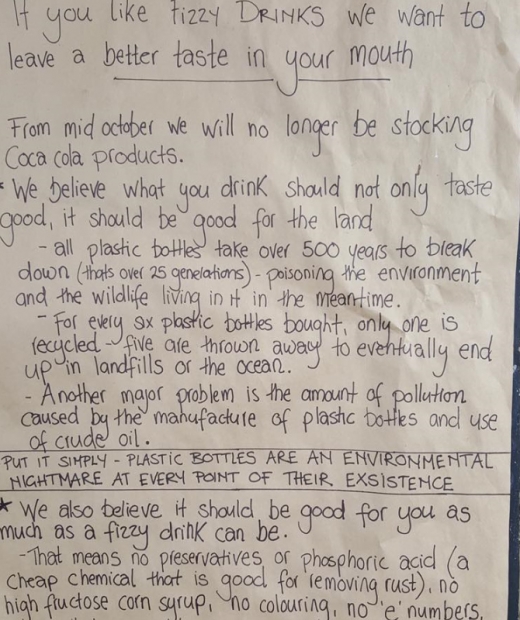 If you like FIZZY DRINKS we want to
leave a better taste in your mouth
From mid october we will no longer be stocking
Coca cola products.
* We believe what you drink should not only taste
good, it should be good for the land
- all plastic bottles take over 500 years to break
down (thats over 25 generations) - poisoning the environment
and the wildlife living in it in the meantime.
- For every six plastic bottles bought, only one is
recycled - five are thrown away to eventually end
up in landfills or the ocean.
- Another major problem is the amount of pollution
caused by the manufacture of plastic bottles and use
of crude oil.
PUT IT SIMPLY - PLASTIC BOTTLES ARE AN ENVIRONMENTAL
NIGHTMARE AT EVERY POINT OF THEIR EXSISTENCE
* We also believe it should be good for you as
much as a fizzy drink can be.
- That means no preservatives or phosphoric acid (a
cheap chemical that is good for removing rust), no
high fructose corn syrup, no colouring, no 'e' numbers,